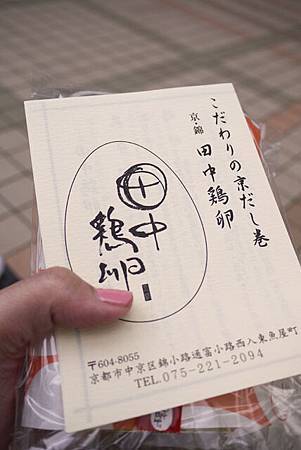 こだわりの京だし巻
京・錦 田中鶏卵
田中
鶏卵
〒604-8055
京都市中京区錦小路通富小路西入東魚屋町
TEL.075-221-2094